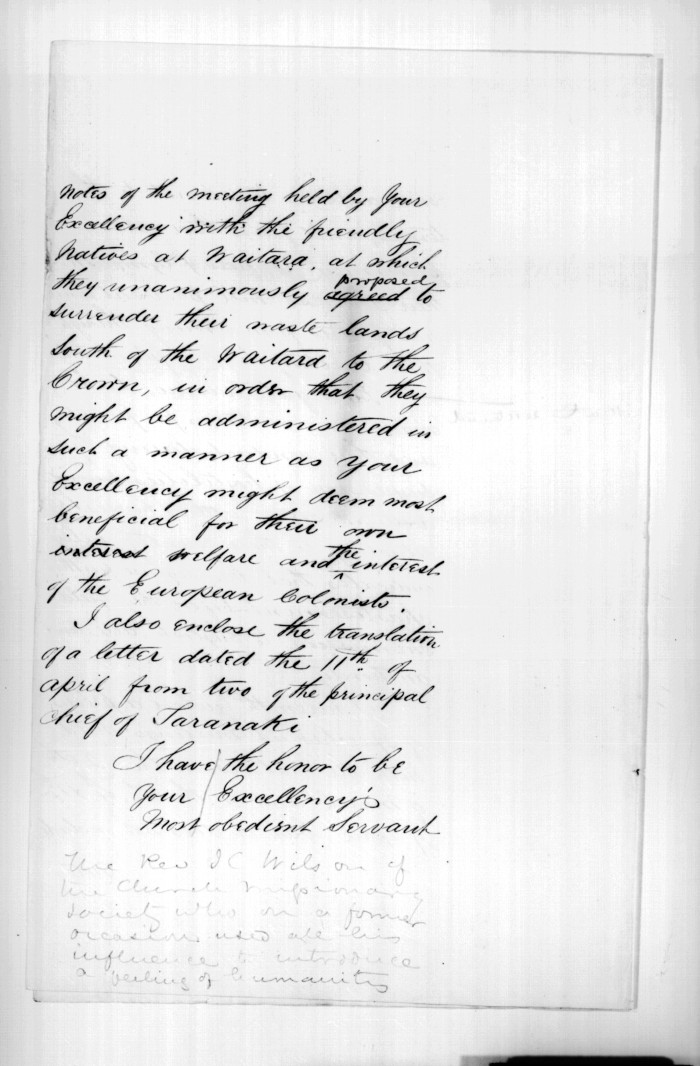 notes of the meeting held by Your
Excellency with the friendly
Natives at Waitara, at which
they unanimously agreed proposed to
surrender their waste lands
South of the Waitara to the
Crown, in order that they
might be administered in
such a manner as Your
Excellency might deem most
beneficial for their own
interest welfare and the interest
of the European Colonists.
I also enclose the translation
of a letter dated the 11th of
April from two of the principal
Chief of Taranaki
I have the honor to be
Your Excellency's
Most obedient Servant
The Rev J C Wilson of
the Church Missionary
Society who on a former
occasion used all his
influence to introduce
a feeling of humanity